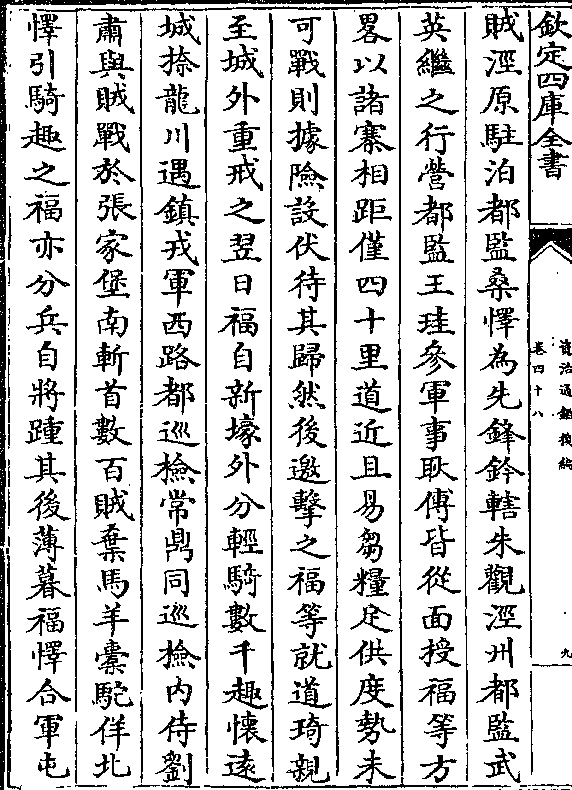 欽定四庫全書
資治通鑑後編
卷四十八
九
賊涇原駐泊都監桑懌為先鋒鈐轄朱觀涇州都監武
英繼之行營都監王珪參軍事耿傅皆從面授福等方
畧以諸寨相距僅四十里道近且易芻糧足供度勢未
可戰則據險設伏待其歸然後邀擊之福等就道琦親
至城外重戒之翌日福自新壕外分輕騎數千趣懷遠
城捺龍川遇鎮戎軍西路都巡檢常鼎同巡檢內侍劉
肅與賊戰於張家堡南斬首數百賊棄馬羊橐駝佯北
懌引騎趣之福亦分兵自將踵其後薄暮福懌合軍屯